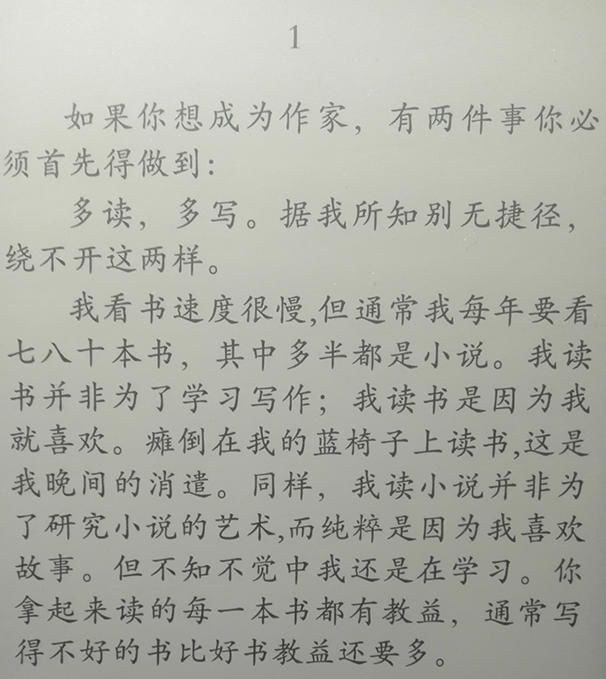 1
如果你想成为作家，有两件事你必
须首先得做到：
多读，多写。据我所知别无捷径，
绕不开这两样。
我看书速度很慢,但通常我每年要看
七八十本书，其中多半都是小说。我读
书并非为了学习写作；我读书是因为我
就喜欢。瘫倒在我的蓝椅子上读书,这是
我晚间的消遣。同样，我读小说并非为
了研究小说的艺术,而纯粹是因为我喜欢
故事。但不知不觉中我还是在学习。你
拿起来读的每一本书都有教益，通常写
得不好的书比好书教益还要多。